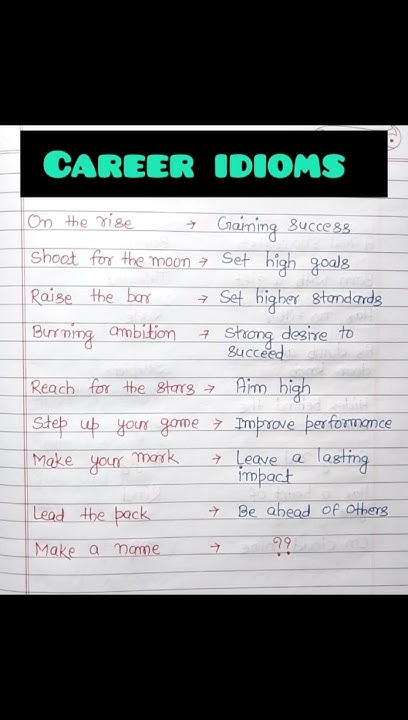 CAREER IDIOMS
On the rise → Gaining success
Shoot for the moon → Set high goals
Raise the bar → Set higher standards
Burning ambition → Strong desire to
succeed
Reach for the stars → Aim high
Step up your game → Improve performance
Make your mark → Leave a lasting
impact
Lead the pack → Be ahead of others
Make a name → ??